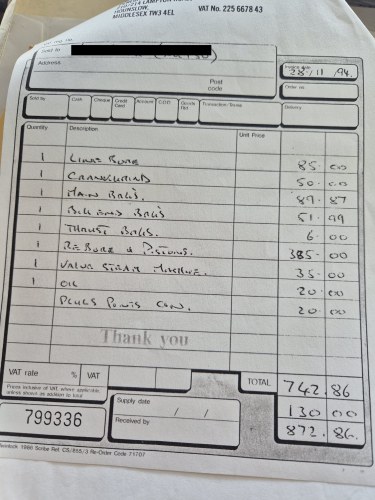 LAMPTON
HOUNSLOW,
MIDDLESEX TW3 4EL
VAT No. 225 6678 43
Sold to
Address
Post
code
Invoice date
28/11/94.
Order no.
Sold by Cash Cheque Credit Card Account C.O.D. Goods Ret Transaction Details Delivery
Quantity Description Unit Price
1 LINE BORE 85.00
1 CRANKGRIND 50.00
1 MAIN BRGS. 89.87
1 BIG ENDS BRGS 51.99
1 THRUST BRGS. 6.00
1 REBORE & PISTONS. 385.00
1 VALVE STEAM MACHINE. 35.00
1 OIL 20.00
PLUGS POINTS CON. 20.00
Thank you
VAT rate % VAT
TOTAL 742.86
Prices inclusive of VAT, where applicable,
unless shown as addition to total
130 00
872.86.
799336
Supply date / /
Received by
1986 Scribe Ref. CS/855/3 Re-Order Code 71707